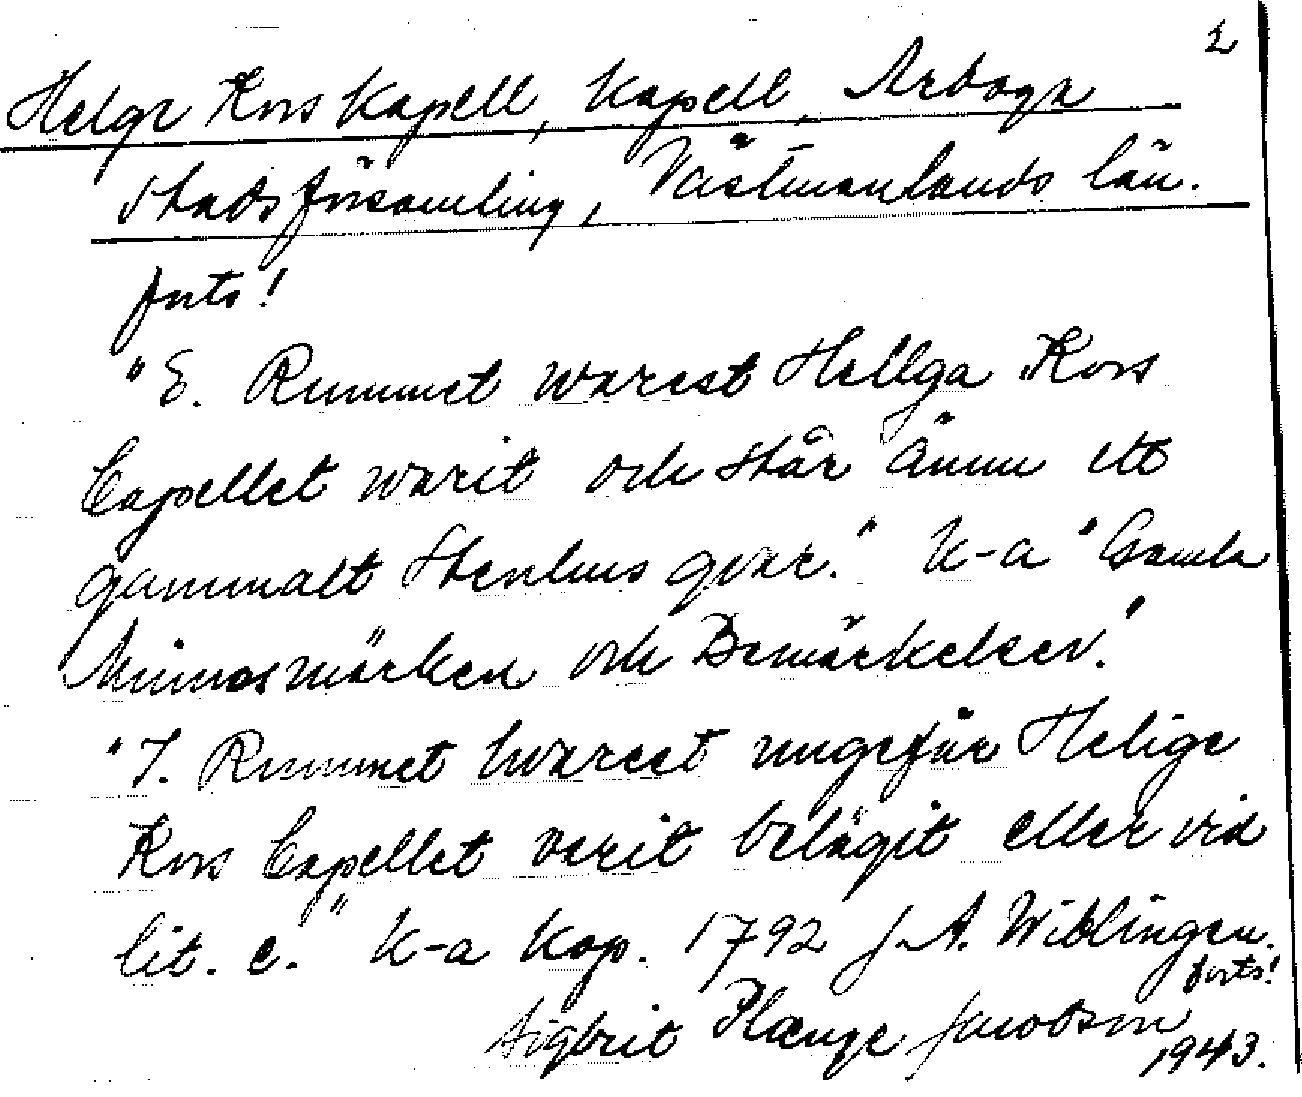 2
Helga Kors kapell, kapell, Arboga
stadsförsamling, Västmanlands län.
forts!
"E. Rummet warest Hellga Kors
Capellet warit och står ännu ett
gammalt Stenhus qvar." K-a "Gamla
Minnesmärken och Bemärkelser."
"7. Rummet hwarest ungefär Helige
Kors Capellet varit belägit eller vid
lit. c." K-a kop. 1792 J. A. Wiblingen.
forts!
Sigbrit Plænge Jacobson
1943.